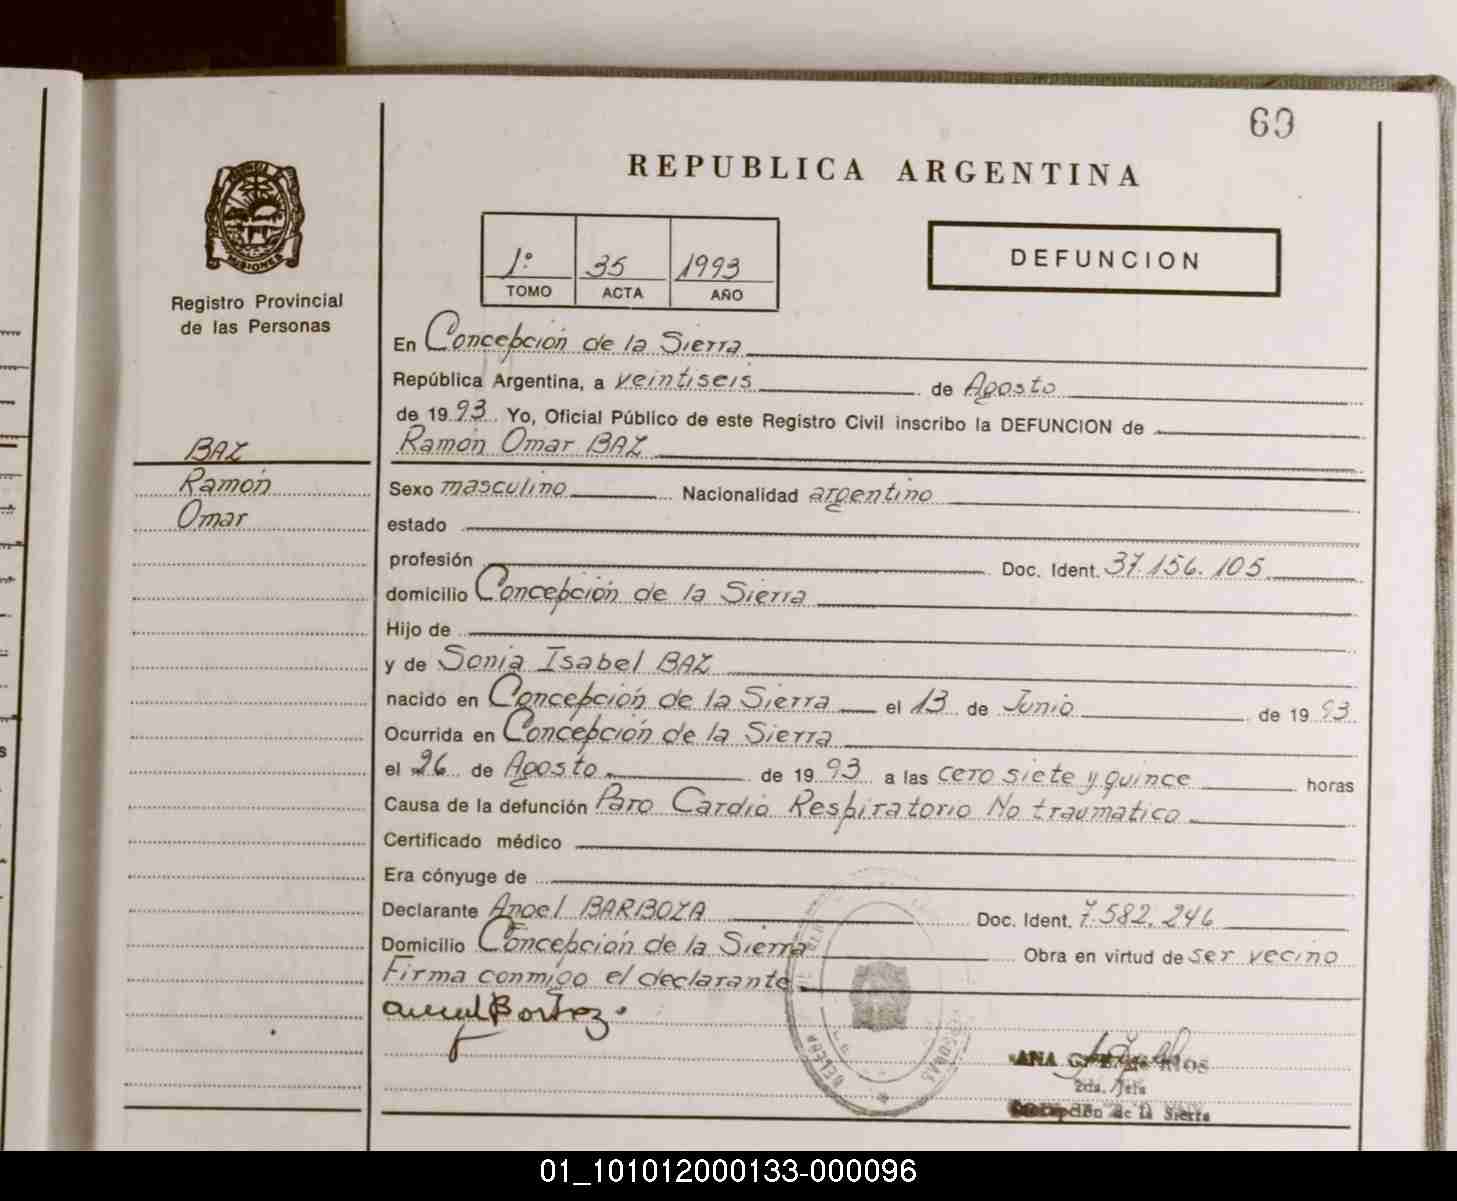 69
REPUBLICA ARGENTINA
MISIONES
Registro Provincial
de las Personas
1º 35 1993
TOMO ACTA AÑO
DEFUNCION
En Concepción de la Sierra
República Argentina, a veintiseis de Agosto
de 1993 Yo, Oficial Público de este Registro Civil inscribo la DEFUNCION de
Ramón Omar BAZ
BAZ
Ramón
Omar
Sexo masculino Nacionalidad argentino
estado
profesión Doc. Ident. 37.156.105
domicilio Concepción de la Sierra
Hijo de
y de Sonia Isabel BAZ
nacido en Concepción de la Sierra el 13 de Junio de 1993
Ocurrida en Concepción de la Sierra
el 26 de Agosto de 1993 a las cero siete y quince horas
Causa de la defunción Paro Cardio Respiratorio No traumatico
Certificado médico
Era cónyuge de
Declarante Angel BARBOZA Doc. Ident. 7.582.246
Domicilio Concepción de la Sierra Obra en virtud de ser vecino
Firma conmigo el declarante
ANA RIOS
2da. Jefa
Concepción de la Sierra
01_101012000133-000096